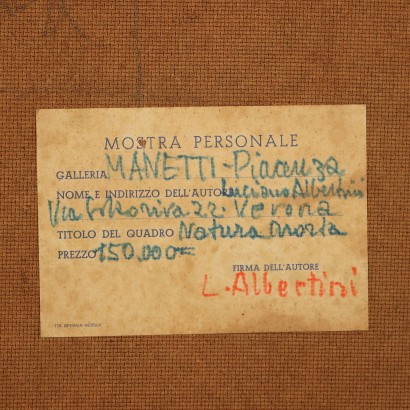 MOSTRA PERSONALE
GALLERIA, MANETTI - Piacenza
NOME E INDIRIZZO DELL'AUTORE Luciano Albertini
Via 22 Verona
TITOLO DEL QUADRO Natura Morta
PREZZO 150.000=
FIRMA DELL'AUTORE
L. Albertini